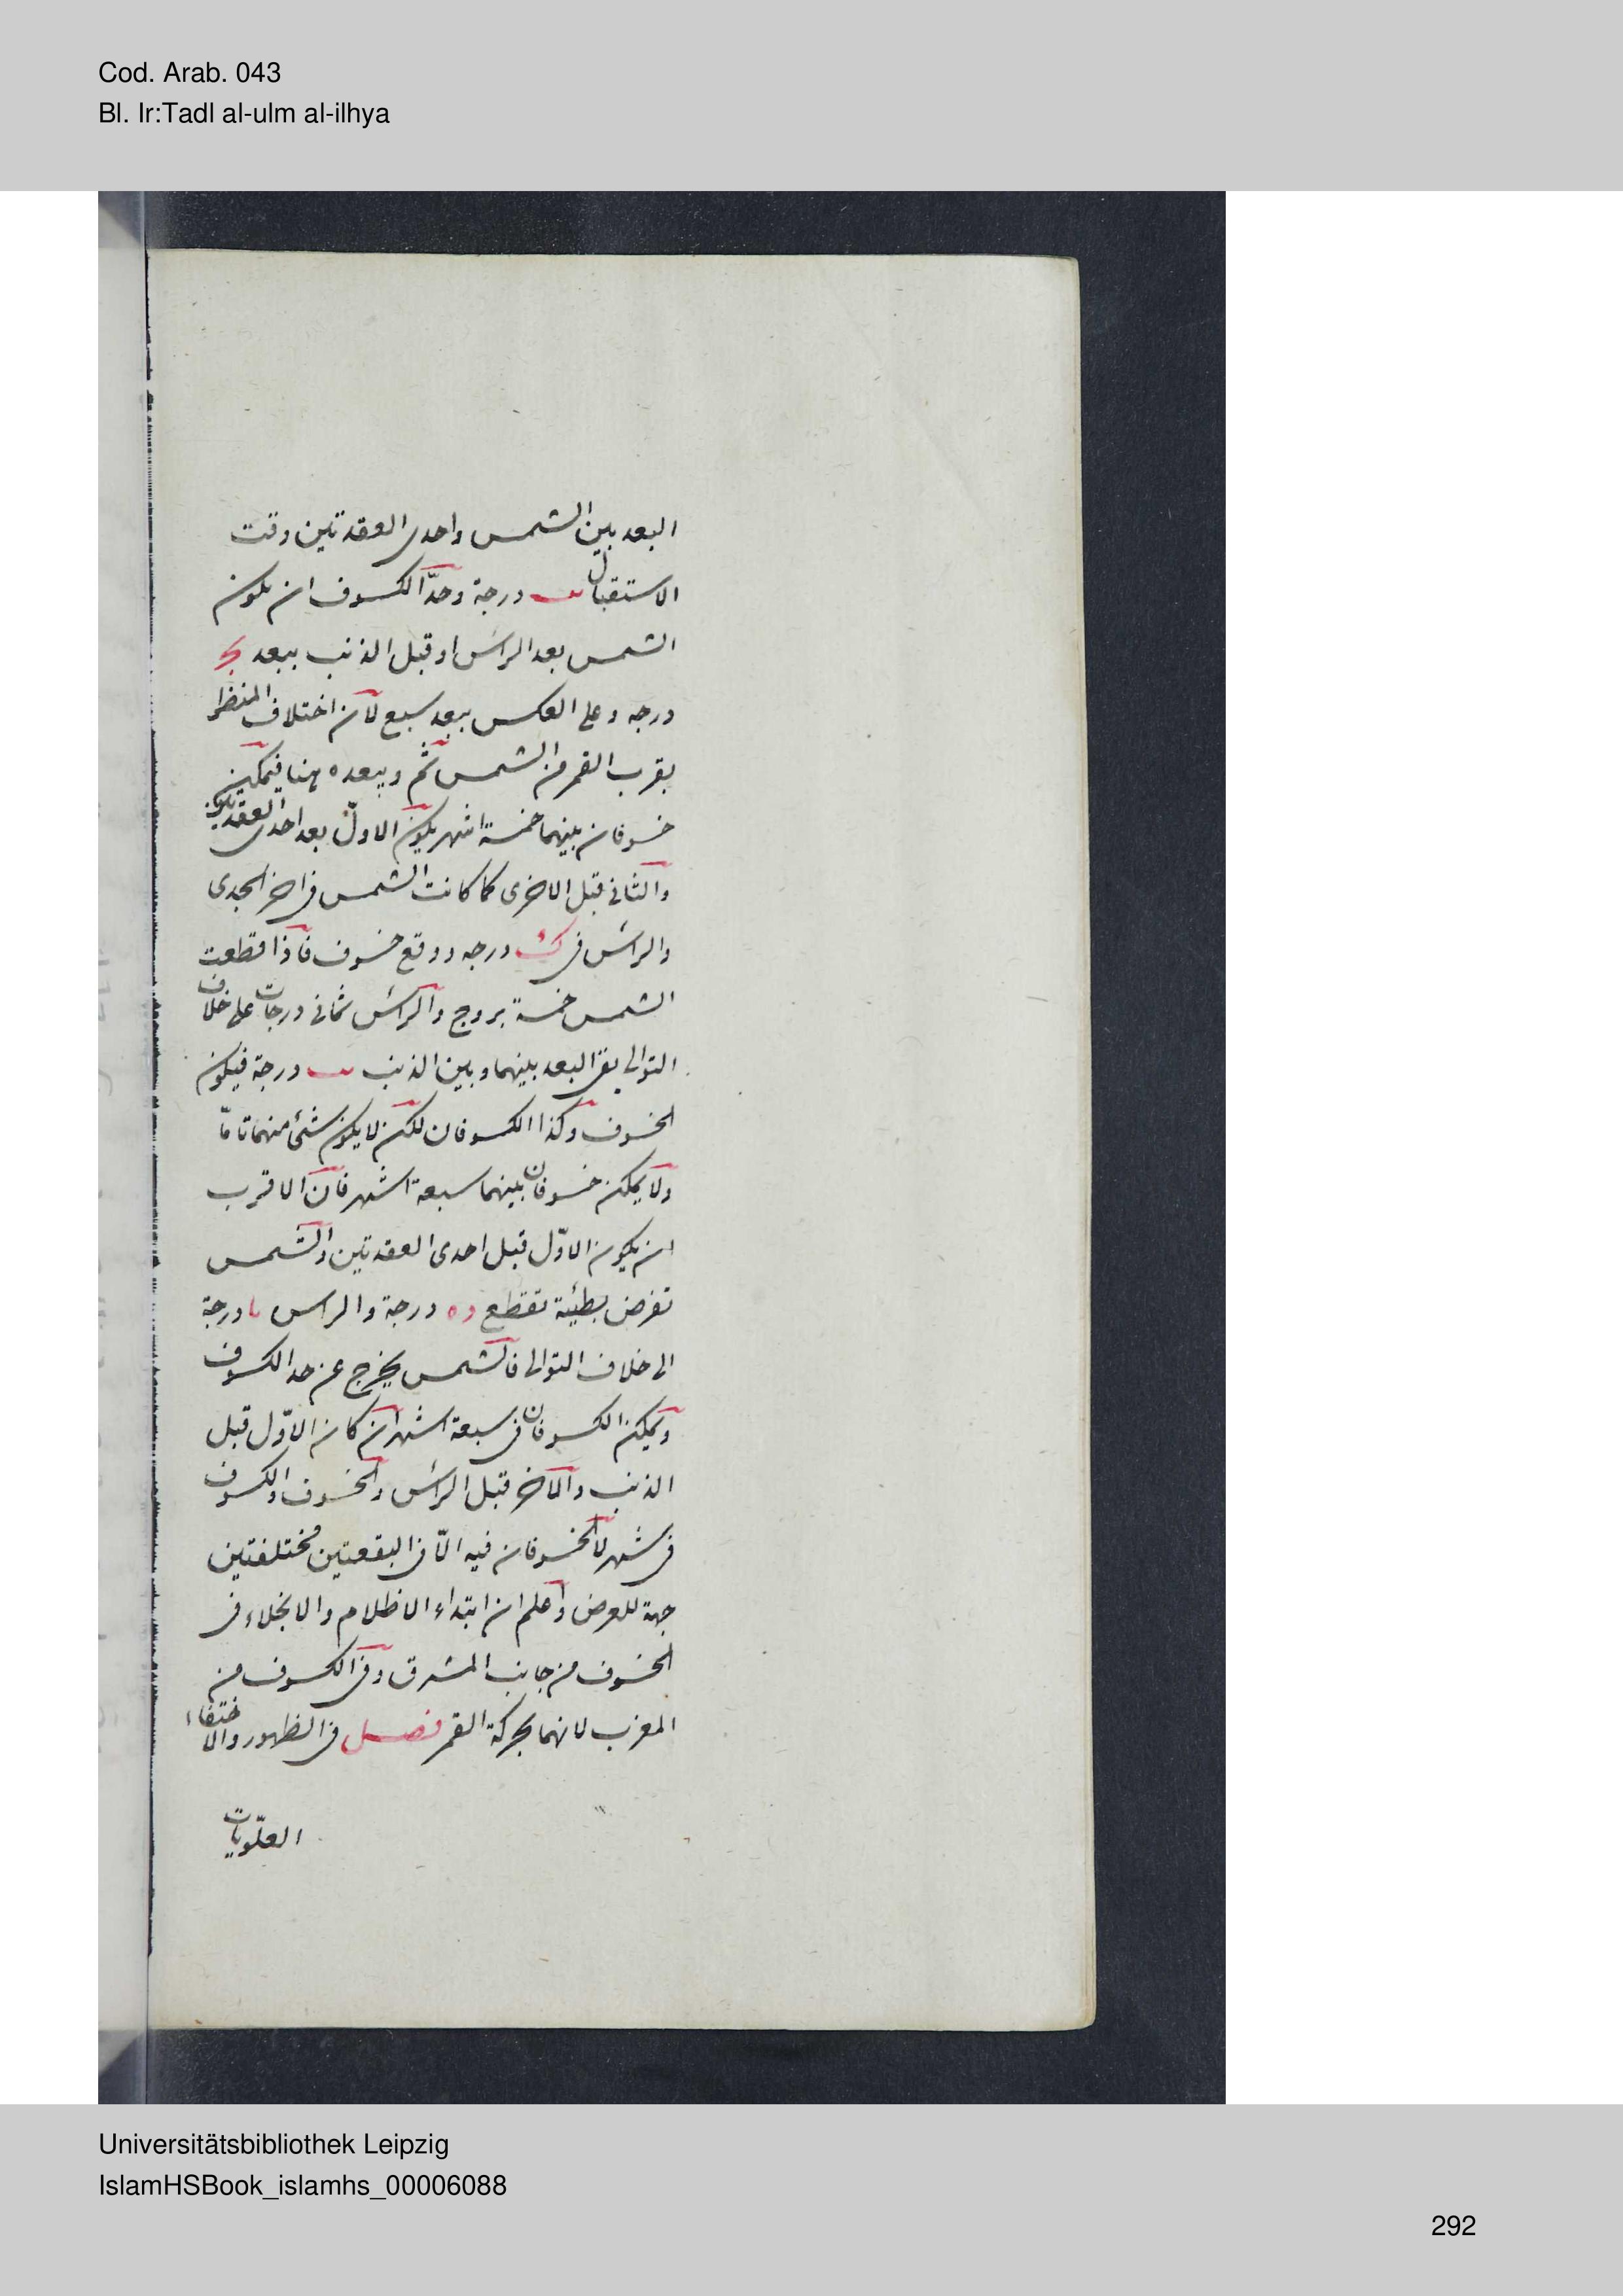 Cod. Arab. 043
Bl. Ir:Tadl al-ulm al-ilhya
البعد بين الشمس واحدى العقدتين وقت
الاستقبال يب درجة وحدّ الكسوف ان يكون
الشمس بعد الراس او قبل الذنب ببعد
درجه وعلى العكس ببعد سبع لان اختلاف المنظر
بقرب القمر من الشمس ثم ويبعده هنا فيمكن
خسوفان بينهما خمسة اشهر يكون الاول بعد احدى العقدتين
والثانى قبل الاخرى كما كانت الشمس فى اخر الجدى
والراس فى درجه ووقع خسوف فاذا قطعت
الشمس خمسة بروج والراس ثمانى درجات على خلاف
التوالى بقى البعد بينهما وبين الذنب يب درجة فيكون
الخسوف وكذا الكسوفان لكن لا يكون شئ منهما تامّا
ولا يمكن خسوفان بينهما سبعة اشهر فان الاقرب
ان يكون الاوّل قبل احدى العقدتين والشمس
تفرض بطيئة تقطع درجة والراس يا درجة
الى خلاف التوالى فالشمس يخرج عن حد الكسوف
ويمكن الكسوفان فى سبعة اشهر ان كان الاوّل قبل
الذنب والاخر قبل الراس والخسوف والكسوف
فى شهر لا الخسوفان فيه الّا فى البقعتين مختلفتين
جهة للعرض واعلم ان ابتداء الاظلام والانجلاء فى
الخسوف من جانب المشرق وفى الكسوف من
المغرب لانهما بحركة القمر فصل فى الظهور والاختفاء
العلّويات
Universitätsbibliothek Leipzig
IslamHSBook_islamhs_00006088
292